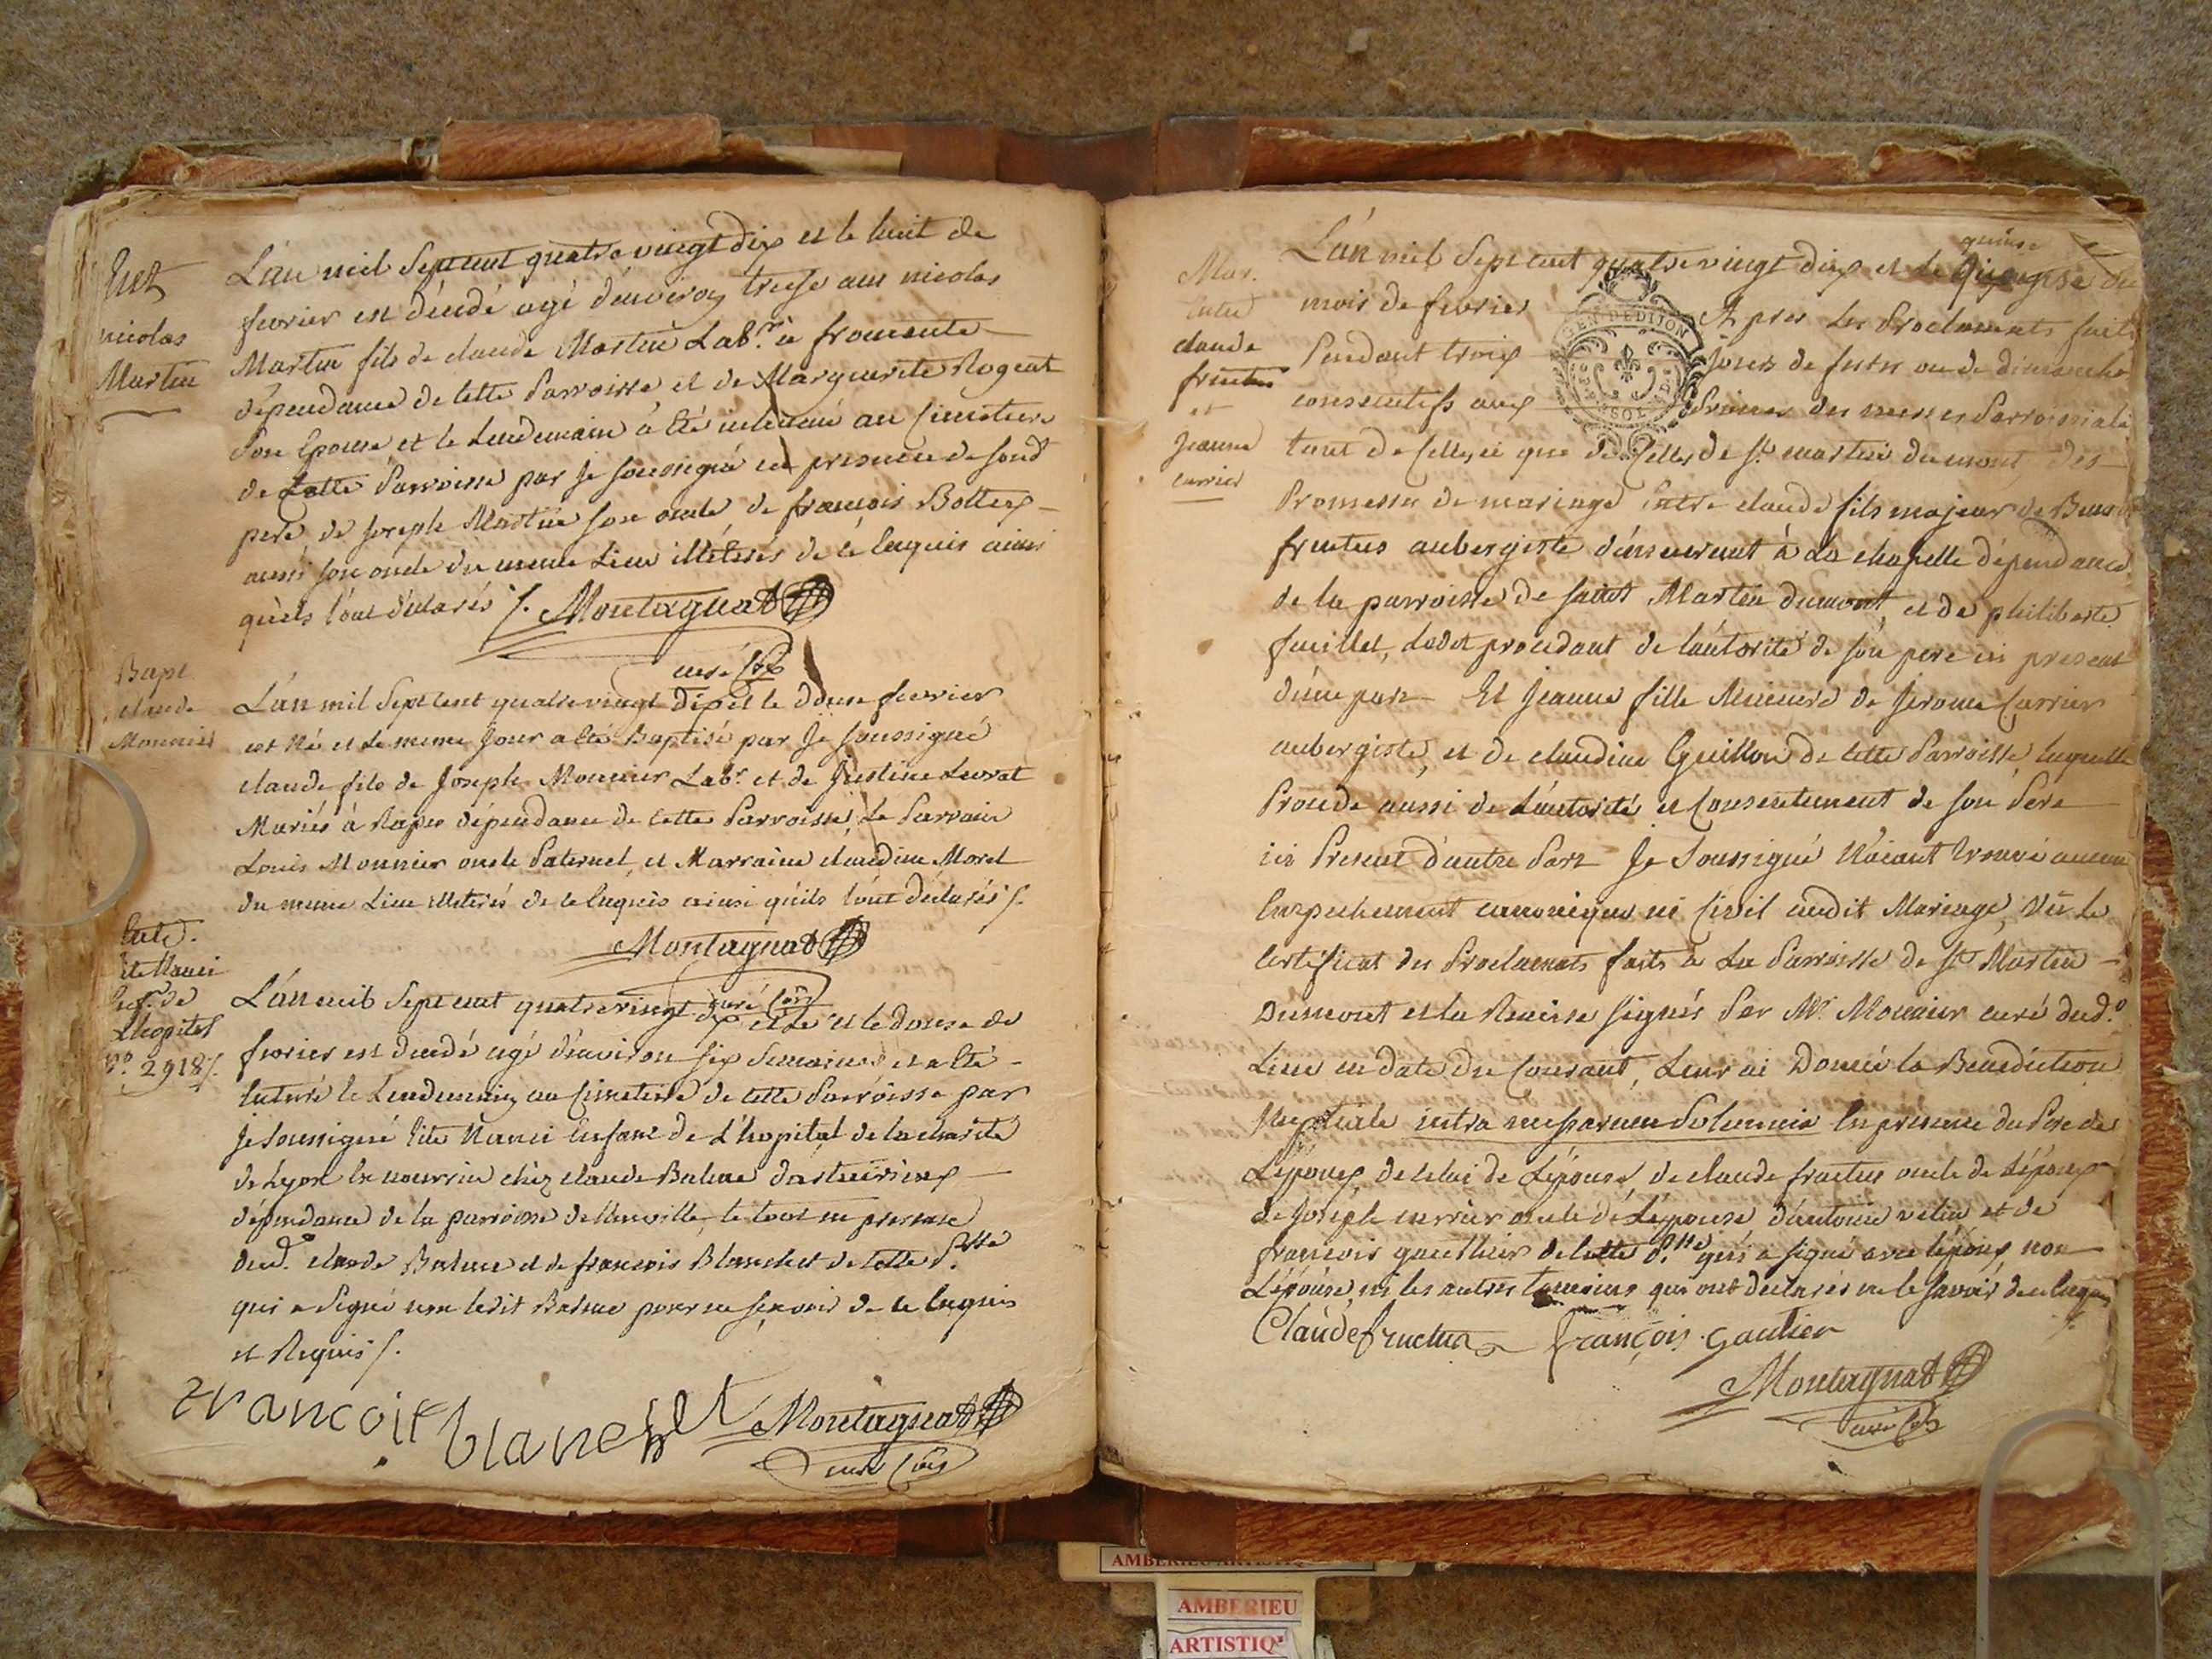 Enet
nicolas
Martin
L'an mil Sept cent quatre vingt dix et le huit de
fevrier est décédé agé d'environ treise ans nicolas
Martin fils de claude Martin Lab.r à fromente
dépendance de cette Parroisse, et de Marguerite Rogeat
Son Epouse et le Lendemain à été inhumé au Cimetiere
de Cette Parroisse par Je soussigné en presence de sond.
pere de Joseph Martin son oncle de françois Bollex
aussi son oncle du meme Lieu illéterés de ce enquis ainsi
qu'els l'ont déclarés /. Montagnat
curé
Bapt
claude
Monnier
L'an mil Sept Cent quatre vingt dix et le douse fevrier
est Né et Le meme Jour a été Baptisé par Je soussigné
claude fils de Joseph Monnier Lab.r et de Justine Levrat
Mariés à Rapes dépendance de cette Parroisse, Le Parrain
Louis Monnier oncle Paternel, et Marraine claudine Morel
du meme Lieu illeterés de ce enquis ainsi qu'ils l'ont déclarés /.
Montagnat
curé
Ent.
Vite Nanci
Enf.t de
L'hopital
N.o 2918 /.
L'an mil Sept cent quatre vingt dix et le et le douse de
fevrier est decédé agé d'environ six Semaines et a été
Enterré le Lendemain au Cimetiere de cette Parroisse par
Je soussigné Vite Nanci Enfant de L'hopital de la charité
de Lyon en nourrice chéz claude Balme
dépendance de la parroisse de Neuville, le tout en presence
dud.o claude Balme et de françois Blanchet de cette P.sse
qui a Signé non ledit Balme pour ne scavoir de ce enquis
et Requis /.
francoit blanchet Montagnat
curé
Mar.
Entre
claude
fructus
et
Jeanne
carrier
L'an mil Sept cent quatre vingt dix et le quinse du
quinse
mois de fevrier Apres Les Proclamats faits
Pendant trois Jours de festes ou de dimanche
consecutifs aux Prônes des messes Parroissiales
GEN DE DIJON
tant de Celles ci que de Celles de S.t martin du mont, des
Promesses de mariage Entre claude fils majeur de Benoit
fructus aubergiste démeurant à La chapelle dépendance
de la parroisse de saint Martin dumont, et de philiberte
feuillet, Ledot procedant de l'autorité de son pere ici present
d'une part Et Jeanne fille Mineure de Jerome Carrier
aubergiste, et de claudine Guillon de cette Parroisse, laquelle
Procéde aussi de L'autorité et Consentement de son Pere
ici Present d'autre Part Je Soussigné N'aiant trouvé aucun
Empechement canonique ni Civil audit Mariage, Vû le
Certificat des Proclamats faits à La Parroisse de S.t Martin
Dumont et la Remise signés Par M.r Monnier curé dud.o
Lieu en date du Courant, Leur ai Donné la Benédiction
Nuptiale intra missarum Solemnia En presence du Pere de
L'epoux, de celui de L'épouse, de claude fructus oncle de L'époux
de Joseph carrier oncle de L'épouse d'antoine velin et de
francois gauthier de cette P.sse qui a signé avec l'époux non
L'épouse, ni les autres temoins qui ont déclarés ne le savoir de ce enquis
/.
Claude fructus françois. gautier
Montagnat
curé
AMBERIEU ARTISTIQ
AMBERIEU
ARTISTIQ